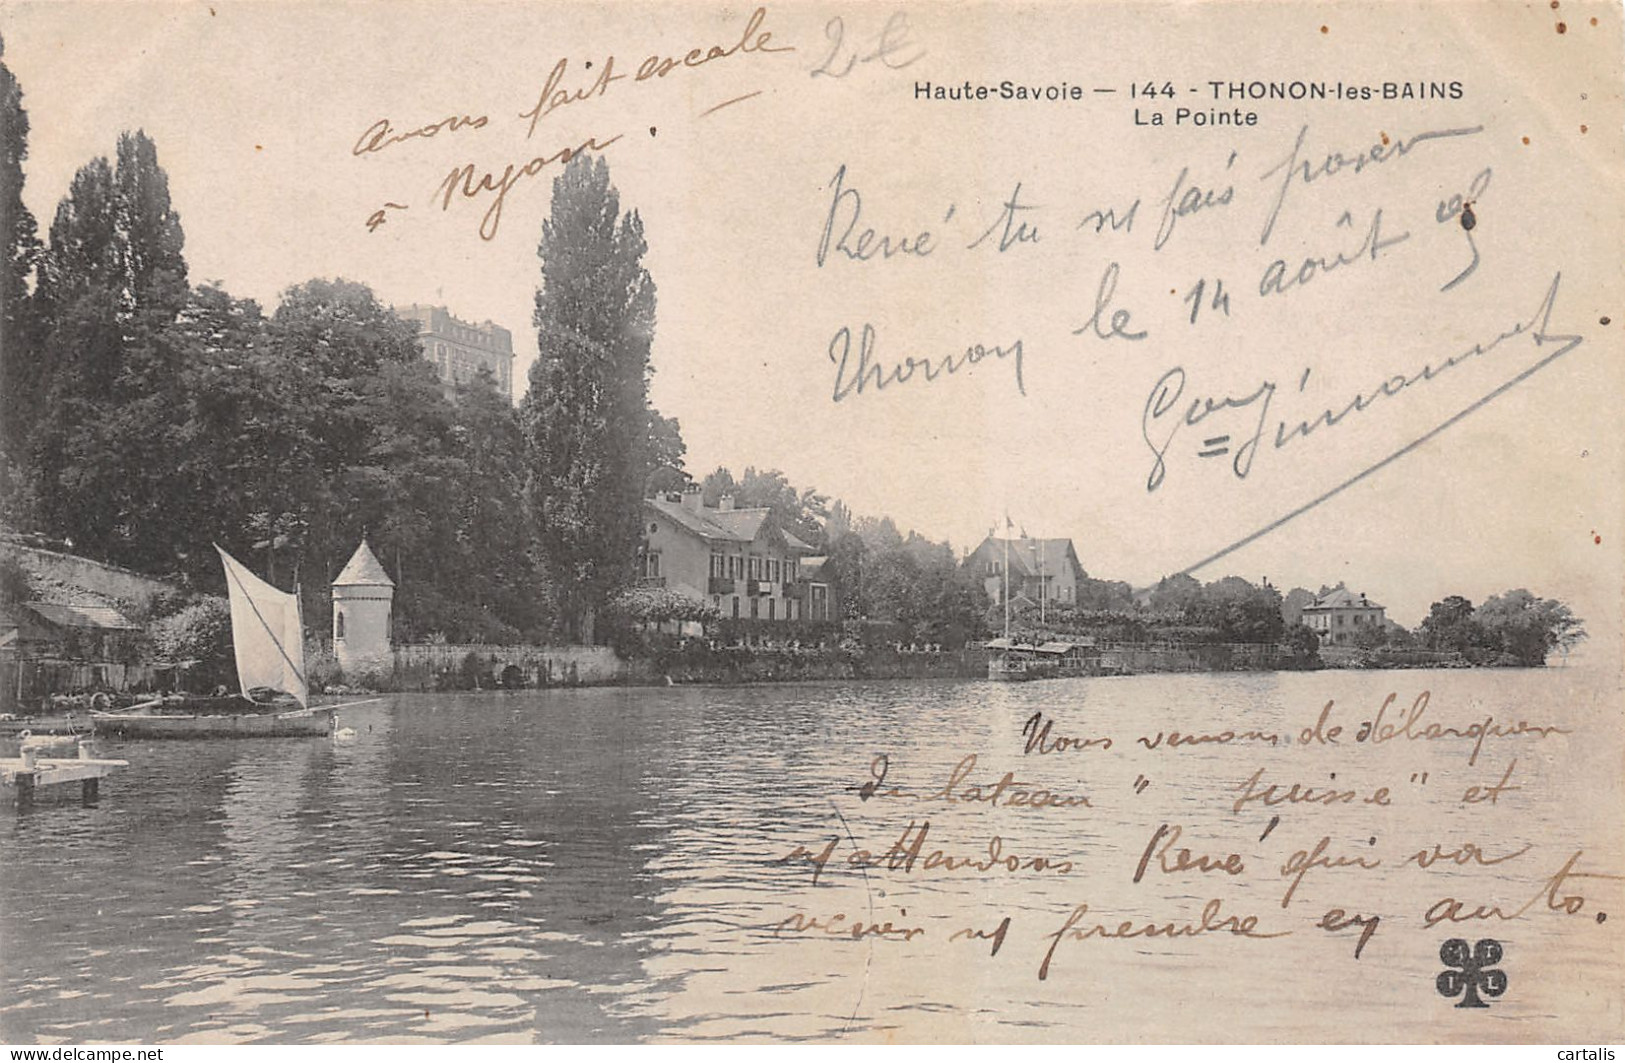 avons fait escale
à Nyon.
2 €
Haute-Savoie — 144 - THONON-les-BAINS
La Pointe
René tu ns fais poser
Thonon le 14 août
Nous venons de débarquer
du bateau " Suisse " et
ns attendons René qui va
venir ns prendre en auto.
delcampe.net
cartalis